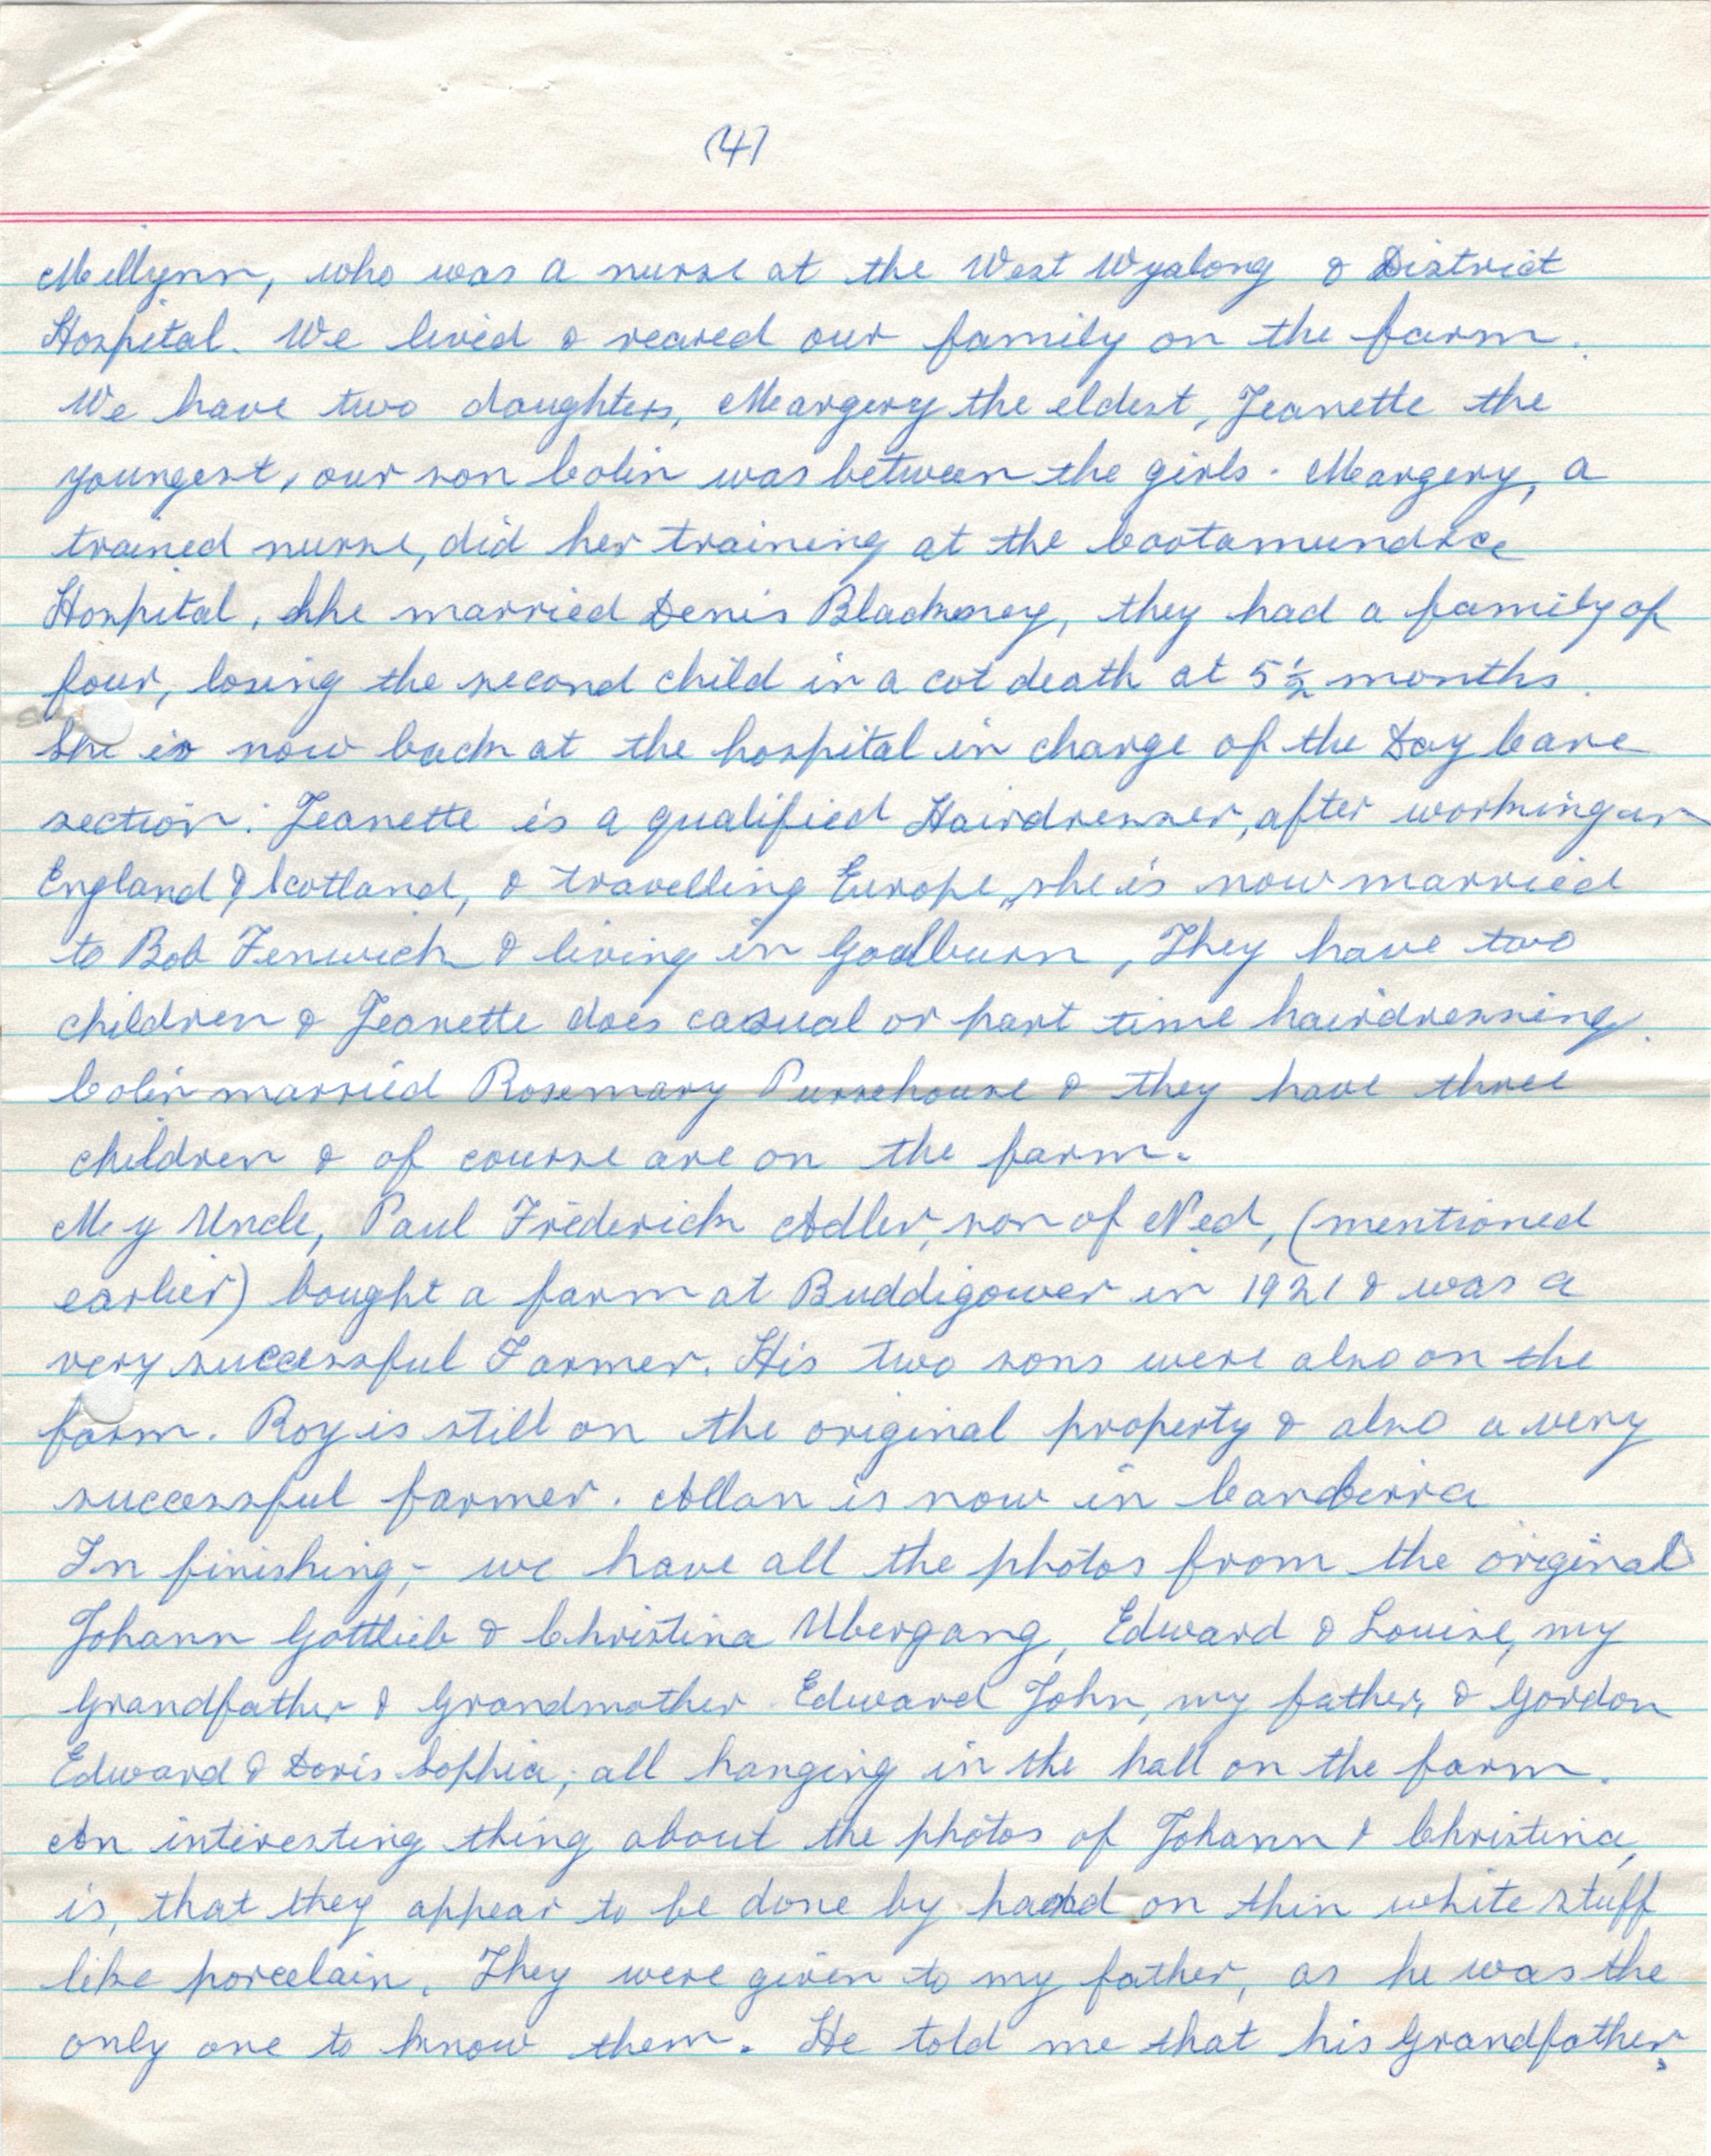 (4)
McGlynn, who was a nurse at the West Wyalong & District
Hospital. We lived & reared our family on the farm.
We have two daughters, Margery the eldest, Jeanette the
youngest, our son Colin was between the girls. Margery, a
trained nurse, did her training at the
Hospital, she married Denis Blackney, they had a family of
four, losing the second child in a cot death at 5½ months.
She is now back at the hospital in charge of the Day Care
section. Jeanette is a qualified Hairdresser, after working in
England & Scotland, & travelling Europe, she is now married
to Bob Fenwick & living in Goulburn, They have two
children & Jeanette does casual or part time hairdressing.
Colin married Rosemary Pursehouse & they have three
children & of course are on the farm.
My Uncle, Paul Frederick Adler, son of Ned, (mentioned
earlier) bought a farm at Buddigower in 1921 & was a
very successful Farmer. His two sons were also on the
farm. Roy is still on the original property & also a very
successful farmer. Allan is now in Canberra
In finishing,- we have all the photos from the original
Johann Gottlieb & Christina Ubergang, Edward & Louise, my
Grandfather & Grandmother. Edward John, my father, & Gordon
Edward & Doris Sophia, all hanging in the hall on the farm.
An interesting thing about the photos of Johann & Christina,
is, that they appear to be done by hand on thin white stuff
like porcelain. They were given to my father, as he was the
only one to know them. He told me that his Grandfather,